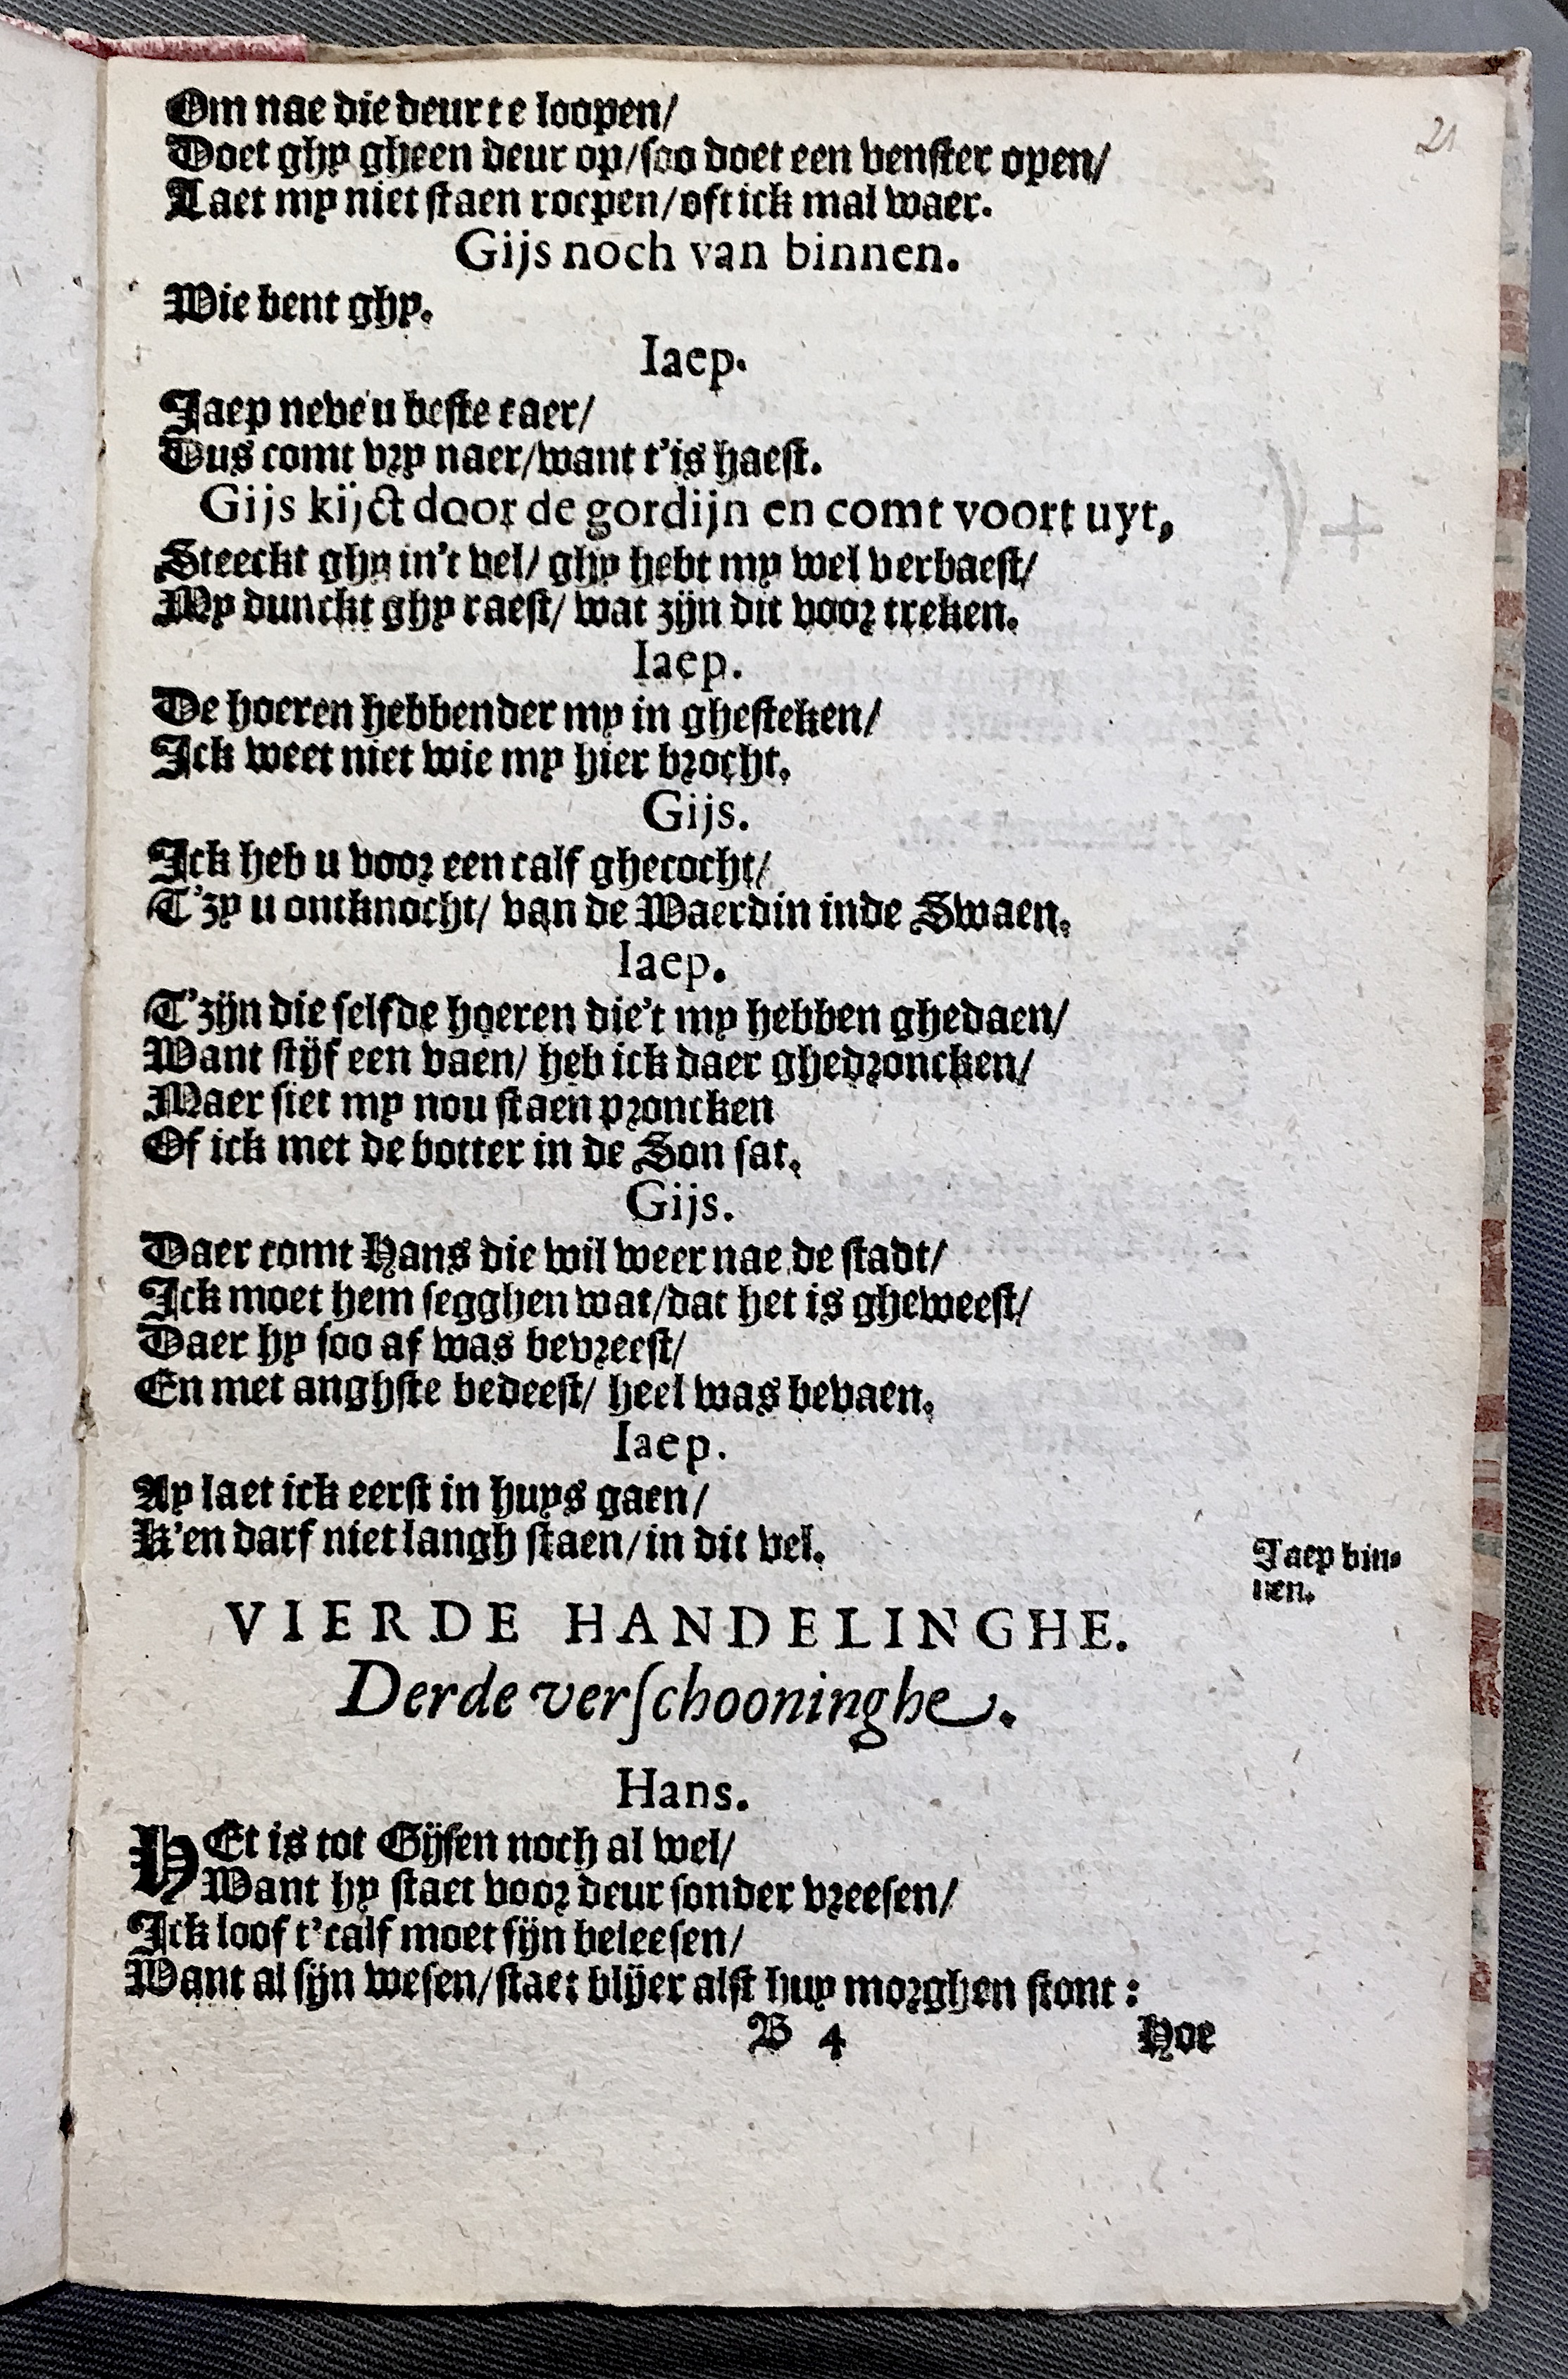 21
Om nae die deur te loopen/
Doet ghy gheen deur op/soo doet een venster open/
Laet my niet staen roepen/oft ick mal waer.
Gijs noch van binnen.
Wie bent ghy.
Iaep.
Jaep neve u beste caer/
Dus comt vry naer/want t'is haest.
Gijs kijct door de gordijn en comt voort uyt,
Steeckt ghy in't vel/ ghy hebt my wel verbaest/
My dunckt ghy raest/ wat zijn dit voor treken.
Iaep.
De hoeren hebbender my in ghesteken/
Ick weet niet wie my hier brocht.
Gijs.
Ick heb u voor een calf ghecocht/
T'zy u ontknocht/ van de Waerdin inde Swaen.
Iaep.
T'zijn die selfde hoeren die't my hebben ghedaen/
Want stijf een vaen/ heb ick daer ghedroncken/
Maer siet my nou staen proncken
Of ick met de botter in de Son sat.
Gijs.
Daer comt Hans die wil weer nae de stadt/
Ick moet hem segghen wat/dat het is gheweest/
Daer hy soo af was bevreest/
En met anghste bedeest/ heel was bevaen.
Iaep.
Ay laet ick eerst in huys gaen/
K'en darf niet langh staen/in dit vel.
Jaep bin-
nen.
VIERDE HANDELINGHE.
Derde verschooninghe.
Hans.
HEt is tot Gijsen noch al wel/
Want hy staet voor deur sonder vreesen/
Ick loof t'calf moet sijn beleesen/
Want al sijn wesen/staet blijer alst huy morghen stont:
B 4
Hoe